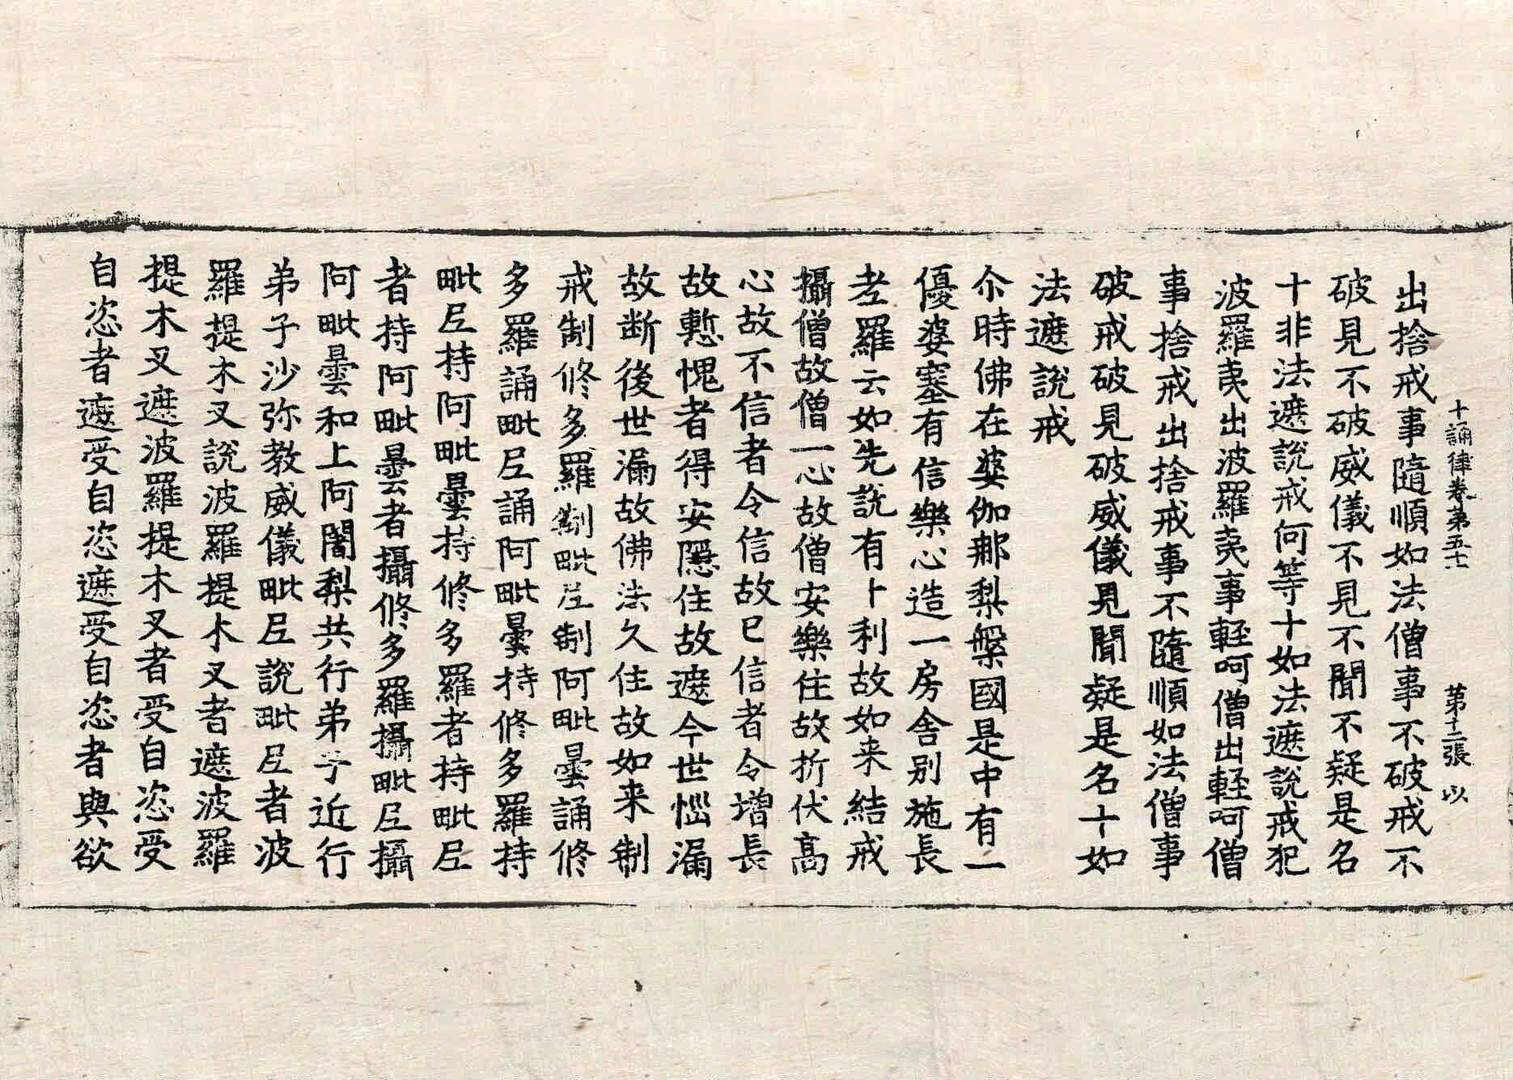 十誦律卷第五十 第十二張 以
出捨戒事隨順如法僧事不破戒不
破見不破威儀不見不聞不疑是名
十非法遮說戒何等十如法遮說戒犯
波羅夷出波羅夷事輕呵僧出輕呵僧
事捨戒出捨戒事不隨順如法僧事
破戒破見破威儀見聞疑是名十如
法遮說戒
尒時佛在婆伽郍梨槃國是中有一
優婆塞有信樂心造一房舍別施長
老羅云如先說有十利故如来結戒
攝僧故僧一心故僧安樂住故折伏高
心故不信者令信故已信者令增長
故慙愧者得安隱住故遮今世惱漏
故断後世漏故佛法久住故如来制
戒制修多羅制毗尼制阿毗曇誦修
多羅誦毗尼誦阿毗曇持修多羅持
毗尼持阿毗曇持修多羅者持毗尼
者持阿毗曇者攝修多羅攝毗尼攝
阿毗曇和上阿闍梨共行弟子近行
弟子沙弥教威儀毗尼說毗尼者波
羅提木叉說波羅提木叉者遮波羅
提木叉遮波羅提木叉者受自恣受
自恣者遮受自恣遮受自恣者與欲